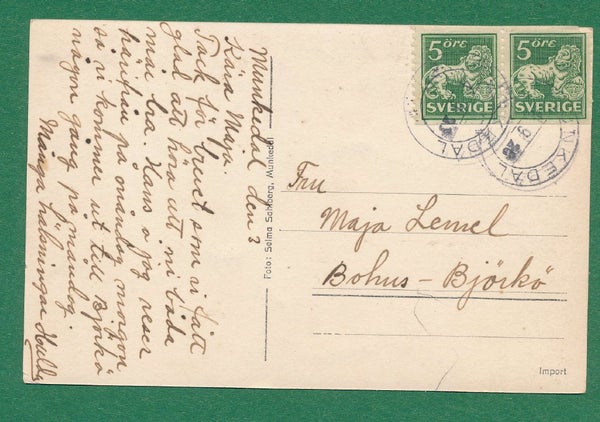 Munkedal den 3
Kära Maja.
Tack för brevet som vi fått
glad att höra att ni båda
mår bra. Hans o jag reser
härifrån på måndag morgon
så vi kommer ut till Björkö
någon gång på måndag.
Många hälsningar Hulda
Foto: Selma Sahlberg, Munkedal
5 ÖRE
SVERIGE
5 ÖRE
SVERIGE
MUNKEDAL
Fru
Maja Lemel
Bohus - Björkö
Import